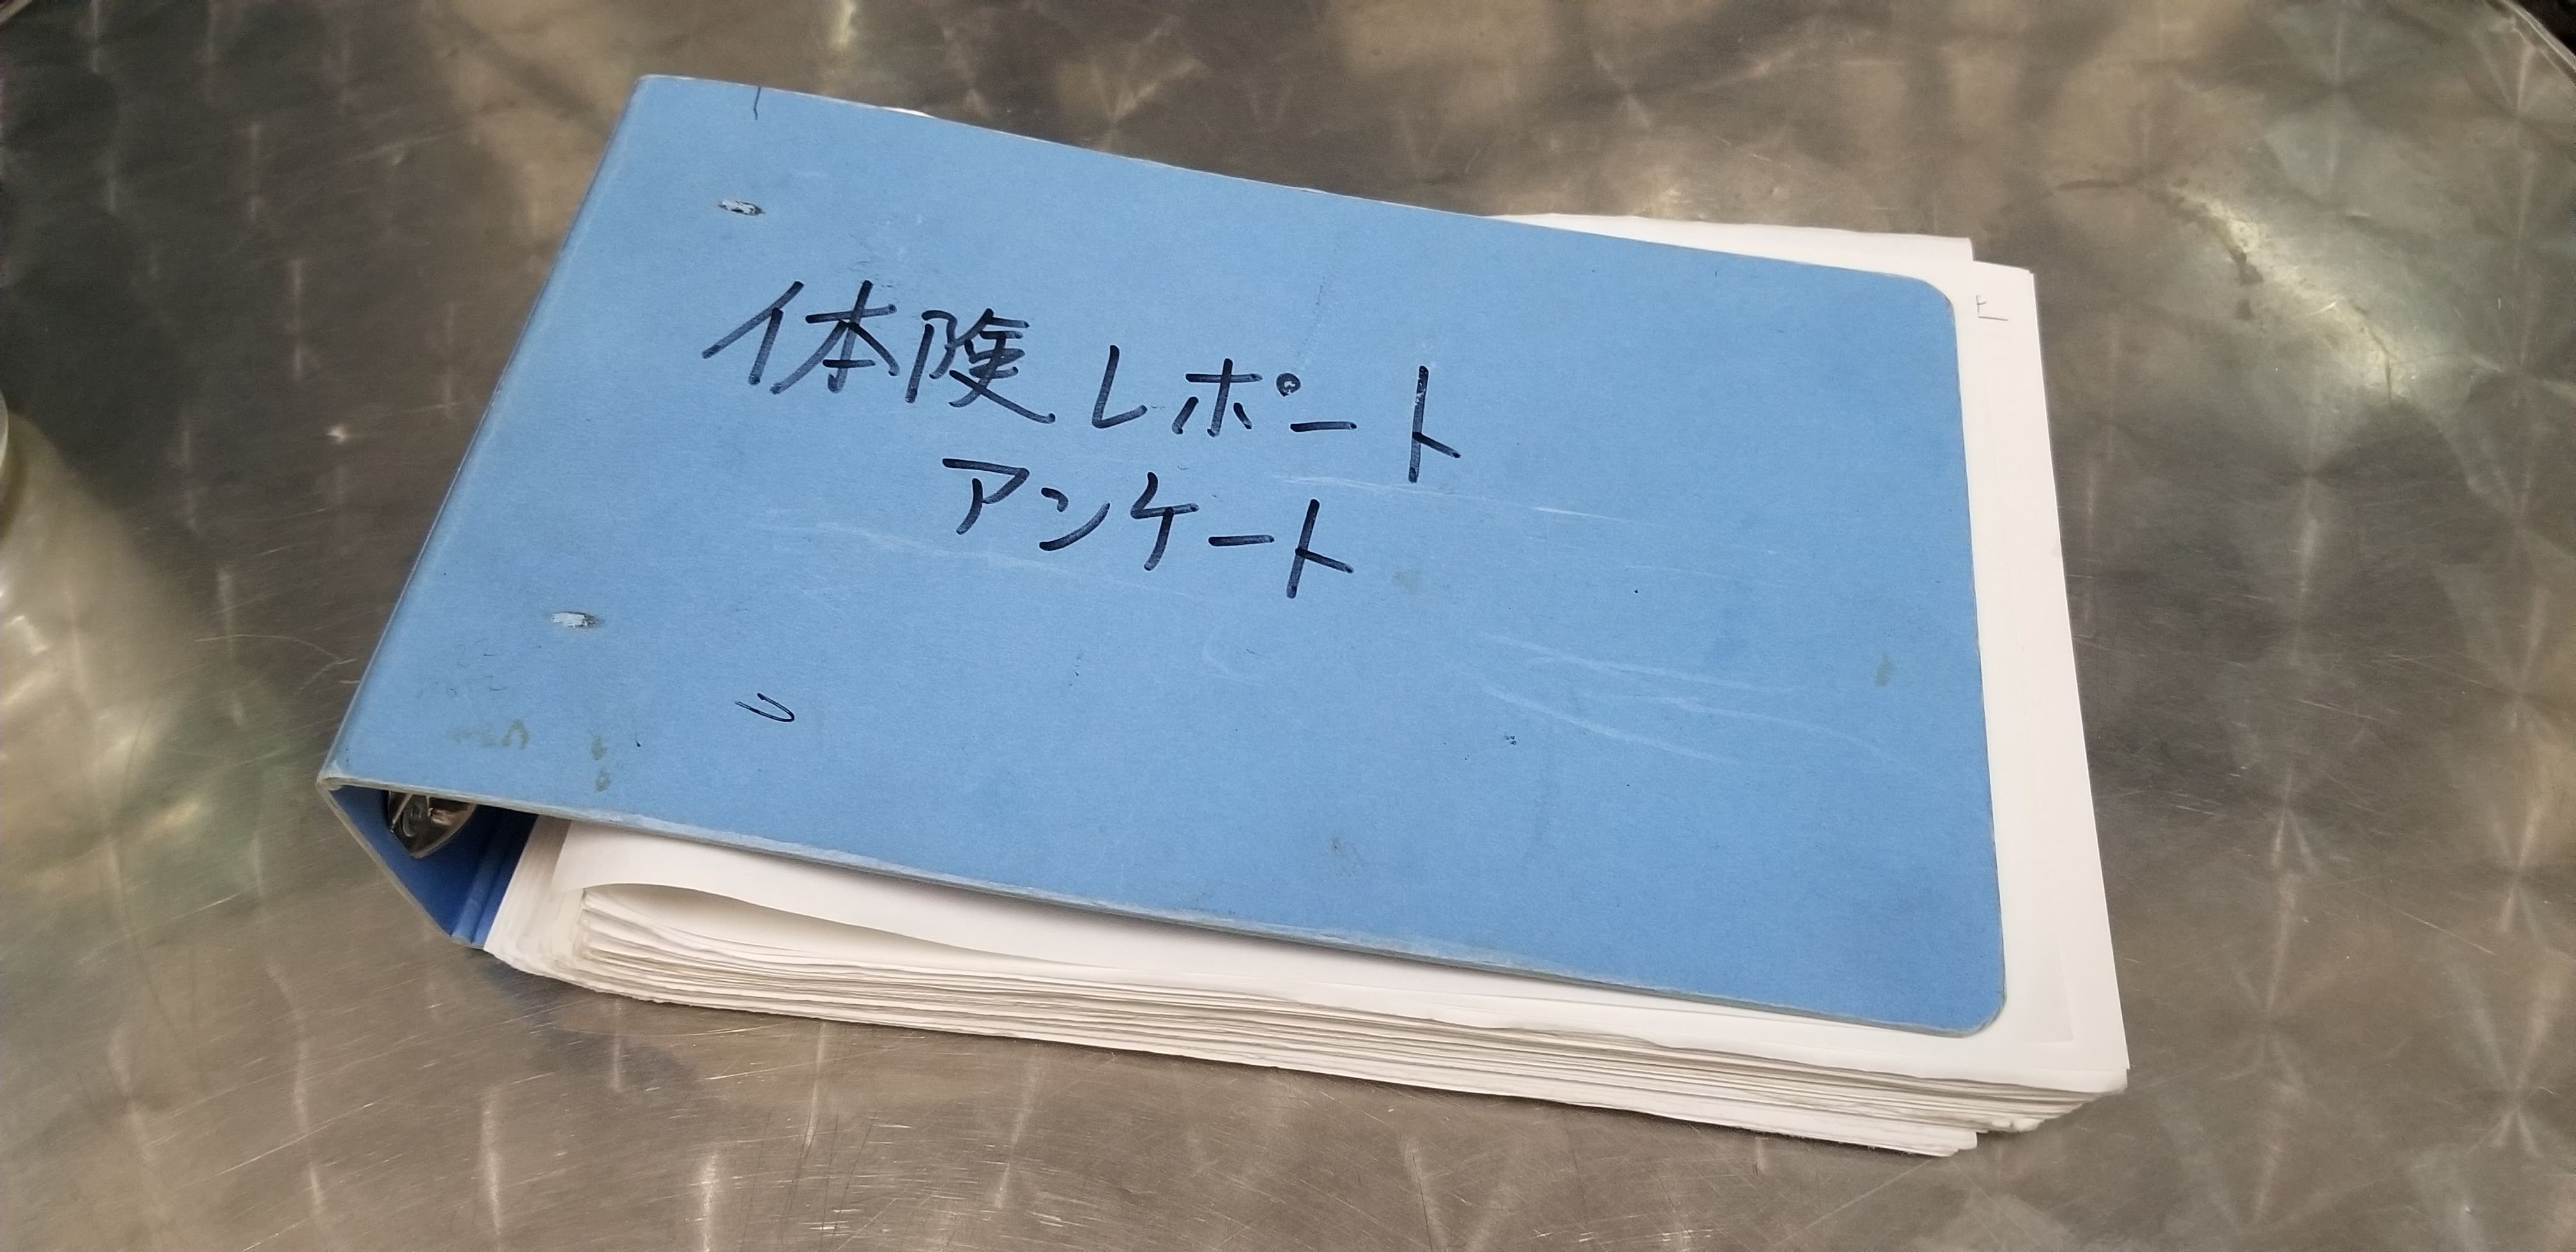 体険レポート
アンケート